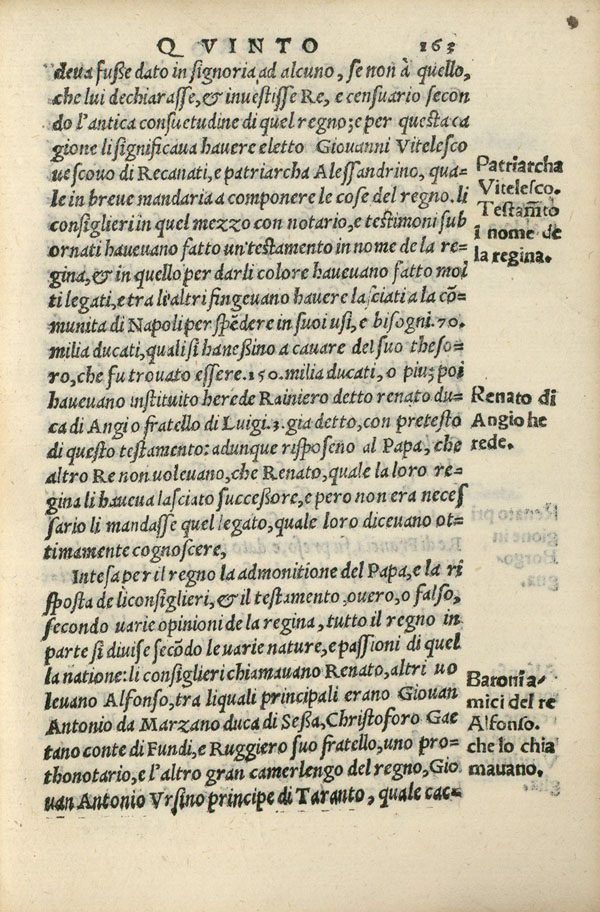 QVINTO 163
deua fuße dato in signoria ad alcuno, se non à quello,
che lui dechiarasse, & inuestisse Re, e censuario secon
do l'antica consuetudine di quel regno; e per questa ca
gione li significaua hauere eletto Giouanni Vitelesco
uescouo di Recanati, e patriarcha Alessandrino, qua=
le in breue mandaria a componere le cose del regno. li
consiglieri in quel mezzo con notario, e testimoni sub
ornati haueuano fatto un'testamento in nome de la re=
gina, & in quello per darli colore haueuano fatto mol
ti legati, e tra li altri fingeuano hauere lasciati a la cõ=
munita di Napoli per spẽdere in suoi usi, e bisogni .70.
milia ducati, quali si haneßino a cauare del suo theso=
ro, che fu trouato essere .150. milia ducati, o piu; poi
haueuano instituito herede Rainiero detto renato du=
ca di Angio fratello di Luigi .3. gia detto, con pretesto
di questo testamento: adunque risposeno al Papa, che
altro Re non uoleuano, che Renato, quale la loro re=
gina li haueua lasciato succeßore, e pero non era necess
sario li mandasse quel legato, quale loro diceuano ot=
timamente cognoscere,
Intesa per il regno la admonitione del Papa, e la ri
sposta de li consiglieri, & il testamento, ouero, o falso,
secondo uarie opinioni de la regina, tutto il regno in
parte si diuise secõdo le uarie nature, e passioni di quel
la natione: li consiglieri chiamauano Renato, altri uo
leuano Alfonso, tra li quali principali erano Giouan
Antonio da Marzano duca di Seßa, Christoforo Gae
tano conte di Fundi, e Ruggiero suo fratello, uno pro=
thonotario, e l'altro gran camerlengo del regno, Gio
uan Antonio Vrsino principe di Taranto, quale cac=
Patriarcha
Vitelesco.
Testamẽto
ĩ nome de
la regina.
Renato di
Angio he
rede.
Baroni a=
mici del re
Alfonso.
che lo chia
mauano.